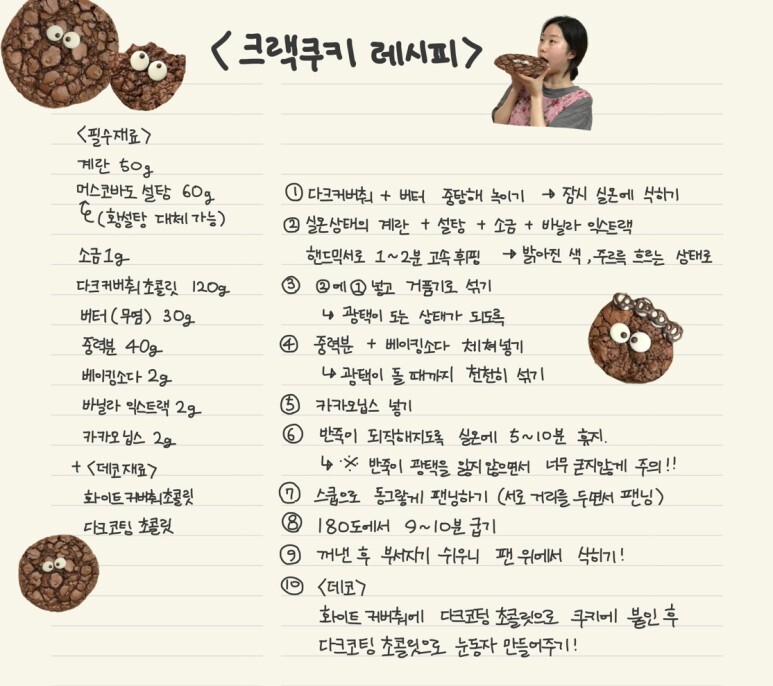 <크랙쿠키 레시피>
<필수재료>
계란 50g
머스코바도 설탕 60g
(황설탕 대체가능)
소금 1g
다크커버춰 초콜릿 120g
버터(무염) 30g
중력분 40g
베이킹소다 2g
바닐라 익스트랙 2g
카카오닙스 2g
+ <데코재료>
화이트커버춰초콜릿
다크코팅 초콜릿
① 다크커버춰 + 버터 중탕해 녹이기 → 잠시 실온에 식히기
② 실온상태의 계란 + 설탕 + 소금 + 바닐라 익스트랙
핸드믹서로 1~2분 고속휘핑 → 밝아진 색, 주르륵 흐르는 상태로
③ ②에 ① 넣고 거품기로 섞기
↳ 광택이 도는 상태가 되도록
④ 중력분 + 베이킹소다 체쳐넣기
↳ 광택이 돌 때까지 천천히 섞기
⑤ 카카오닙스 넣기
⑥ 반죽이 되직해지도록 실온에 5~10분 휴지.
↳ ※ 반죽이 광택을 잃지않으면서 너무 굳지않게 주의!!
⑦ 스쿱으로 동그랗게 팬닝하기 (서로 거리를 두면서 팬닝)
⑧ 180도에서 9~10분 굽기
⑨ 꺼낸 후 부서지기 쉬우니 팬 위에서 식히기!
⑩ <데코>
화이트커버춰에 다크코팅 초콜릿으로 쿠키에 붙인 후
다크코팅 초콜릿으로 눈동자 만들어주기!